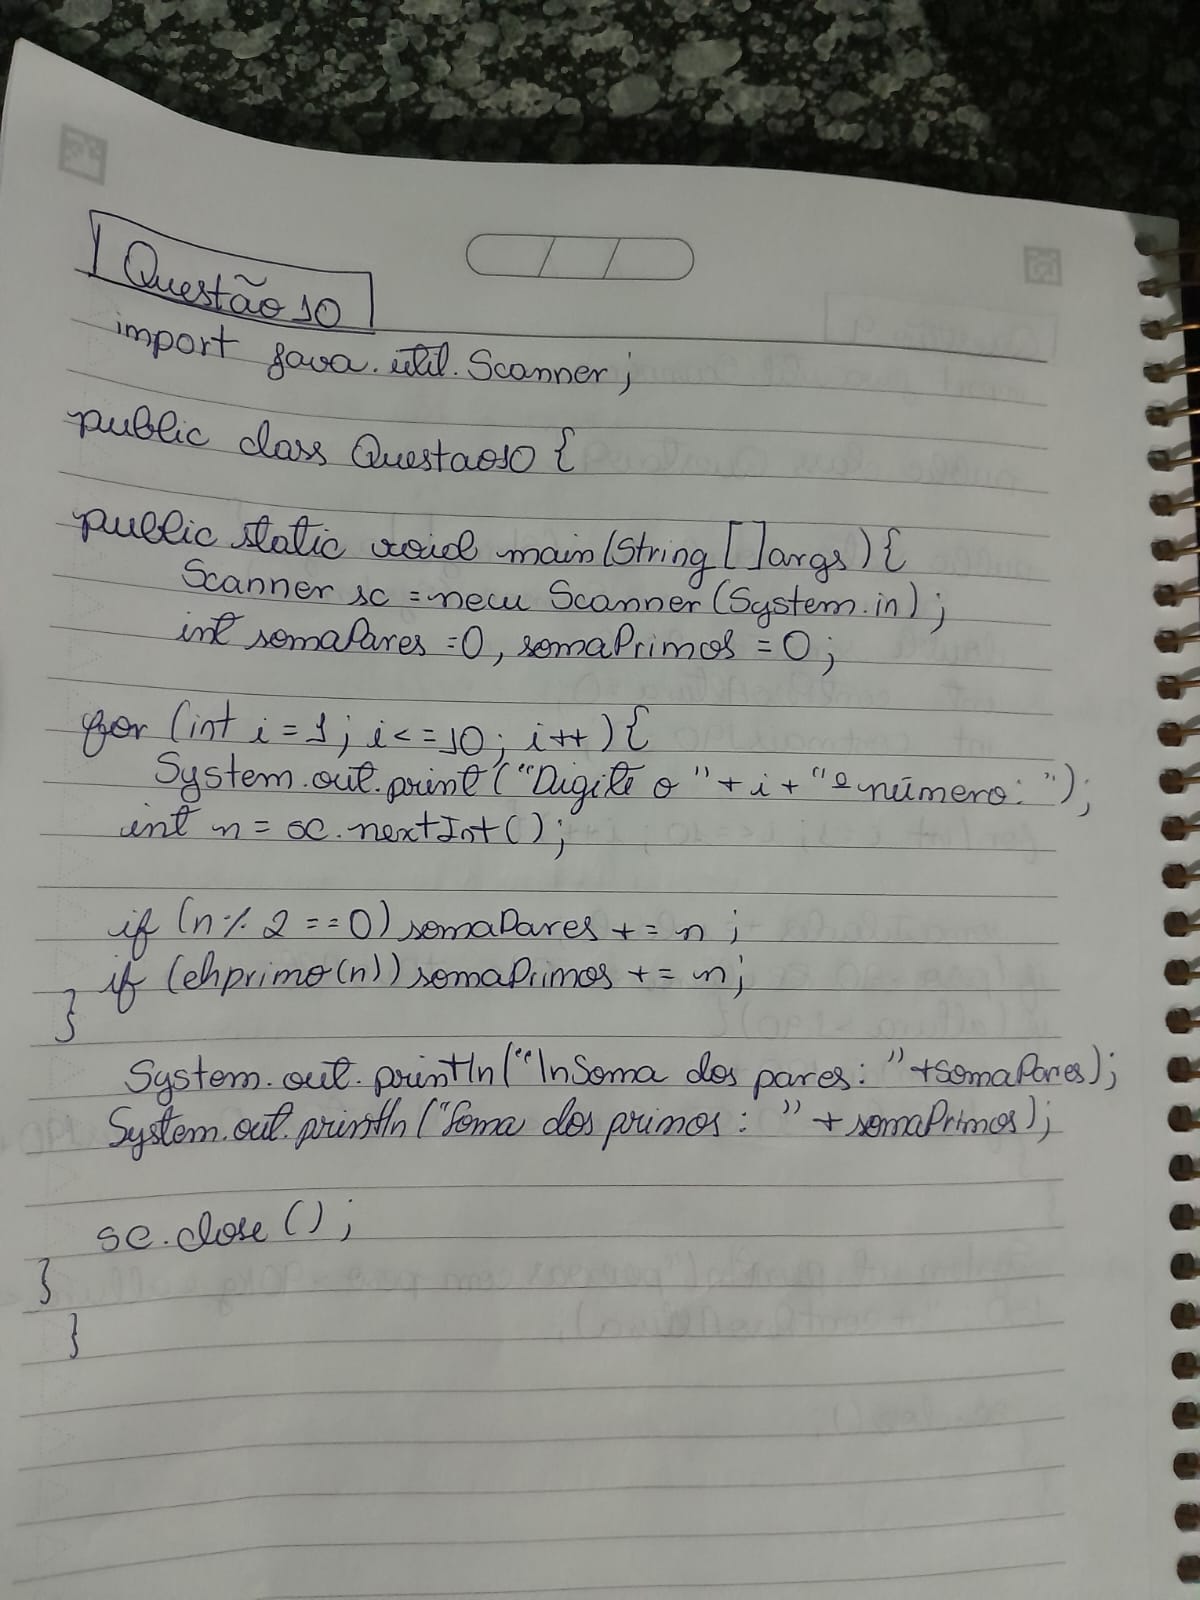 Questão 10
import java.util.Scanner;
public class Questao10 {
public static void main(String[]args){
Scanner sc = new Scanner(System.in);
int somaPares =0, somaPrimos = 0;
for (int i = 1; i <= 10; i++){
System.out.print("Digite o " + i + "º número: ");
int n = sc.nextInt();
if (n % 2 == 0) somaPares += n;
if (ehprimo(n)) somaPrimos += n;
}
System.out.println("\nSoma dos pares: " +somaPares);
System.out.println("Soma dos primos: " + somaPrimos);
sc.close();
}
}